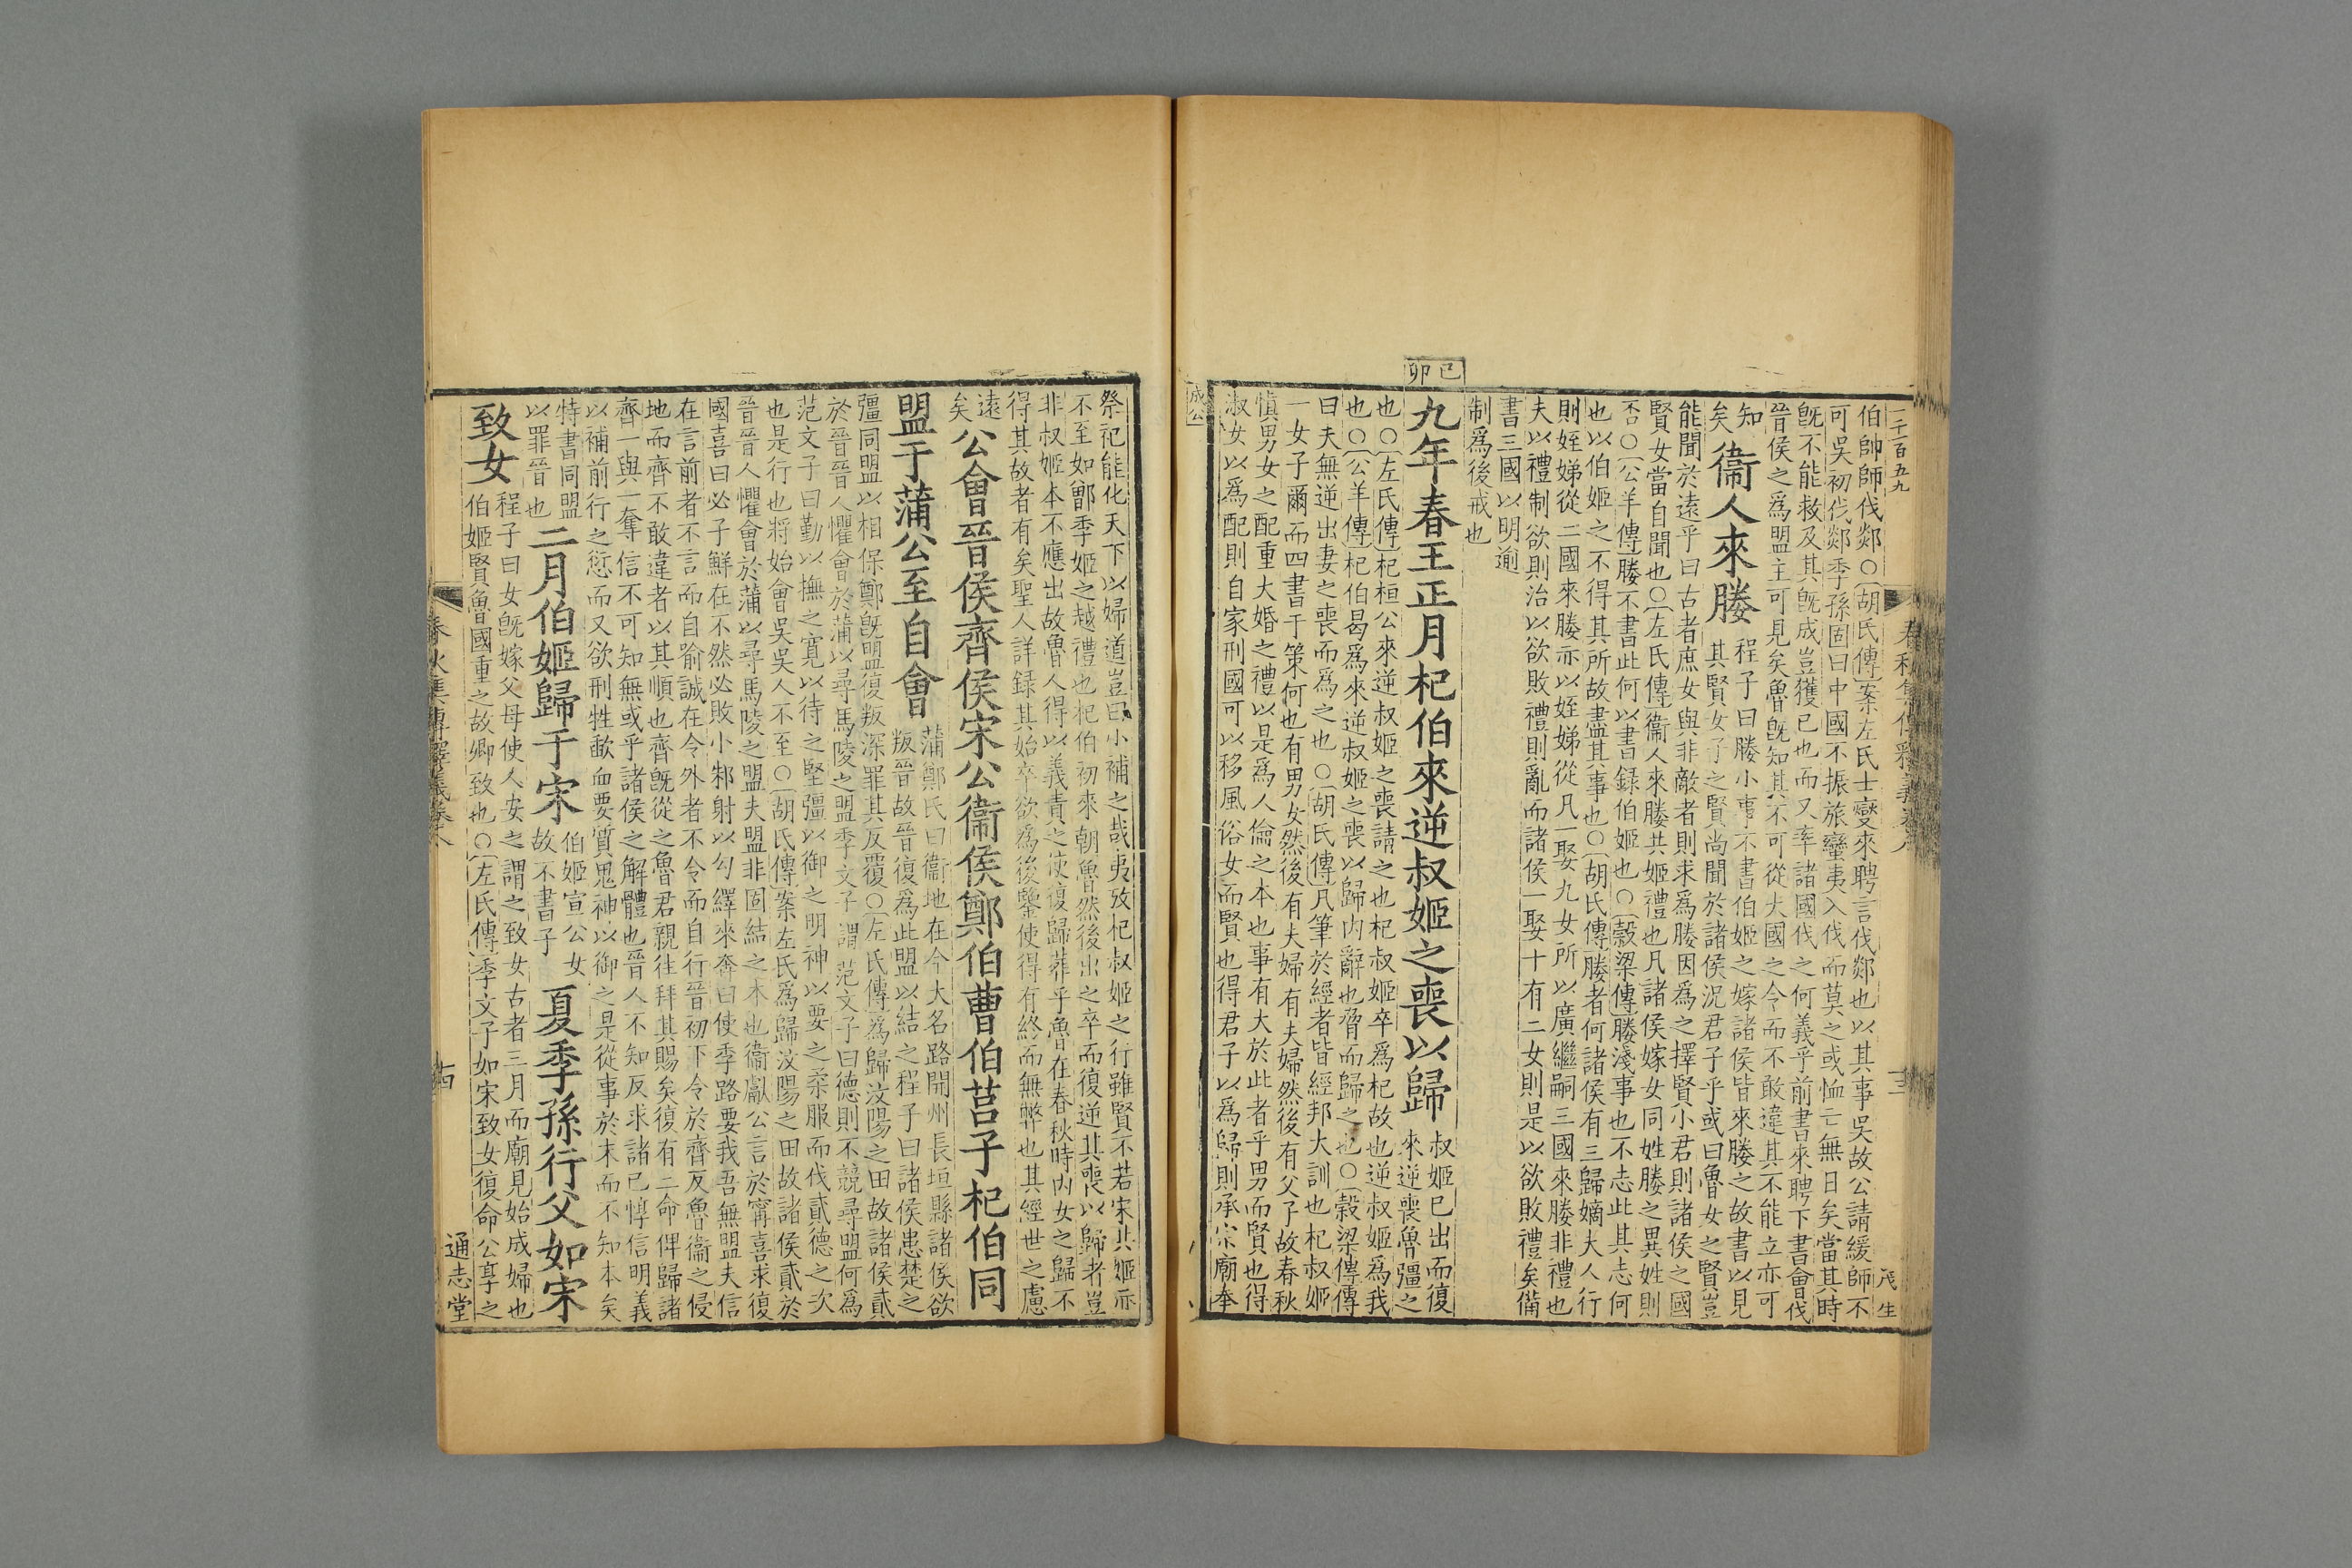 二千一百五九
春秋集傳釋義卷八
十三
茂生
伯帥師伐郯○胡氏傳案左氏士燮來聘言伐郯也以其事吳故公請緩師不
可吳初伐郯季孫固曰中國不振旅蠻夷入伐而莫之或恤亡無日矣當其時
旣不能救及其旣成豈獲已也而又率諸國伐之何義乎前書來聘下書會伐
晉侯之爲盟主可見矣魯旣知其不可從大國之令而不敢違其不能立亦可
知
矣
衞人來媵
程子曰媵小事不書伯姬之嫁諸侯皆來媵之故書以見
其賢女子之賢尚聞於諸侯況君子乎或曰魯女之賢豈
能聞於遠乎曰古者庶女與非敵者則求爲媵因爲之擇賢小君則諸侯之國
賢女當自聞也○左氏傳衞人來媵共姬禮也凡諸侯嫁女同姓媵之異姓則
否○公羊傳媵不書此何以書録伯姬也○穀梁傳媵淺事也不志此其志何
也以伯姬之不得其所故盡其事也○胡氏傳媵者何諸侯有三歸嫡夫人行
則姪娣從二國來媵亦以姪娣從凡一娶九女所以廣繼嗣三國來媵非禮也
夫以禮制欲則治以欲敗禮則亂而諸侯一娶十有二女則是以欲敗禮矣備
書三國以明逾
制爲後戒也
己卯
九年春王正月杞伯來逆叔姬之喪以歸
叔姬已出而復
來逆喪魯彊之
也○左氏傳杞桓公來逆叔姬之喪請之也杞叔姬卒爲杞故也逆叔姬爲我
也○公羊傳杞伯曷爲來逆叔姬之喪以歸内辭也脅而歸之也○穀梁傳傳
曰夫無逆出妻之喪而爲之也○胡氏傳凡筆於經者皆經邦大訓也杞叔姬
一女子爾而四書于策何也有男女然後有夫婦有夫婦然後有父子故春秋
愼男女之配重大婚之禮以是爲人倫之本也事有大於此者乎男而賢也得
淑女以爲配則自家刑國可以移風俗女而賢也得君子以爲歸則承宗廟奉
成公
祭祀能化天下以婦道豈曰小補之哉夷攷杞叔姬之行雖賢不若宋共姬亦
不至如鄫季姬之越禮也杞伯初來朝魯然後出之卒而復逆其喪以歸者豈
非叔姬本不應出故魯人得以義責之使復歸葬乎魯在春秋時内女之歸不
得其故者有矣聖人詳録其始卒欲爲後鑒使得有終而無弊也其經世之慮
遠
矣
公會晉侯齊侯宋公衞侯鄭伯曹伯莒子杞伯同
盟于蒲公至自會
蒲鄭氏曰衞地在今大名路開州長垣縣諸侯欲
叛晉故晉復爲此盟以結之程子曰諸侯患楚之
彊同盟以相保鄭旣盟復叛深罪其反覆○左氏傳爲歸汶陽之田故諸侯貳
於晉晉人懼會於蒲以尋馬陵之盟季文子謂范文子曰德則不競尋盟何爲
范文子曰勤以撫之寛以待之堅彊以御之明神以要之柔服而伐貳德之次
也是行也將始會吳吳人不至○胡氏傳案左氏爲歸汶陽之田故諸侯貳於
晉晉人懼會於蒲以尋馬陵之盟夫盟非固結之本也衞獻公言於甯喜求復
國喜曰必子鮮在不然必敗小邾射以句繹來奔曰使季路要我吾無盟夫信
在言前者不言而自喻誠在令外者不令而自行晉初下令於齊反魯衞之侵
地而齊不敢違者以其順也齊旣從之魯君親往拜其賜矣復有二命俾歸諸
齊一與一奪信不可知無或乎諸侯之解體也晉人不知反求諸己惇信明義
以補前行之愆而又欲刑牲歃血要質鬼神以御之是從事於末而不知本矣
特書同盟
以罪晉也
二月伯姬歸于宋
伯姬宣公女
故不書子
夏季孫行父如宋
致女
程子曰女旣嫁父母使人安之謂之致女古者三月而廟見始成婦也
伯姬賢魯國重之故卿致也○左氏傳季文子如宋致女復命公享之
春秋集傳釋義卷八
十四
通志堂